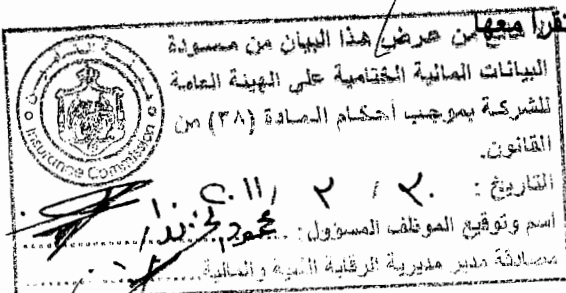 تقرأ معها
مانع من عرض هذا البيان من مسودة
البيانات المالية الختامية على الهيئة العامة
للشركة بموجب أحكام المادة (٣٨) من
القانون.
التاريخ : ٢٠ / ٣ / ٢٠١١
اسم وتوقيع الموظف المسؤول : محمود
مصادقة مدير مديرية الرقابة الفنية والمالية
Insurance Commission